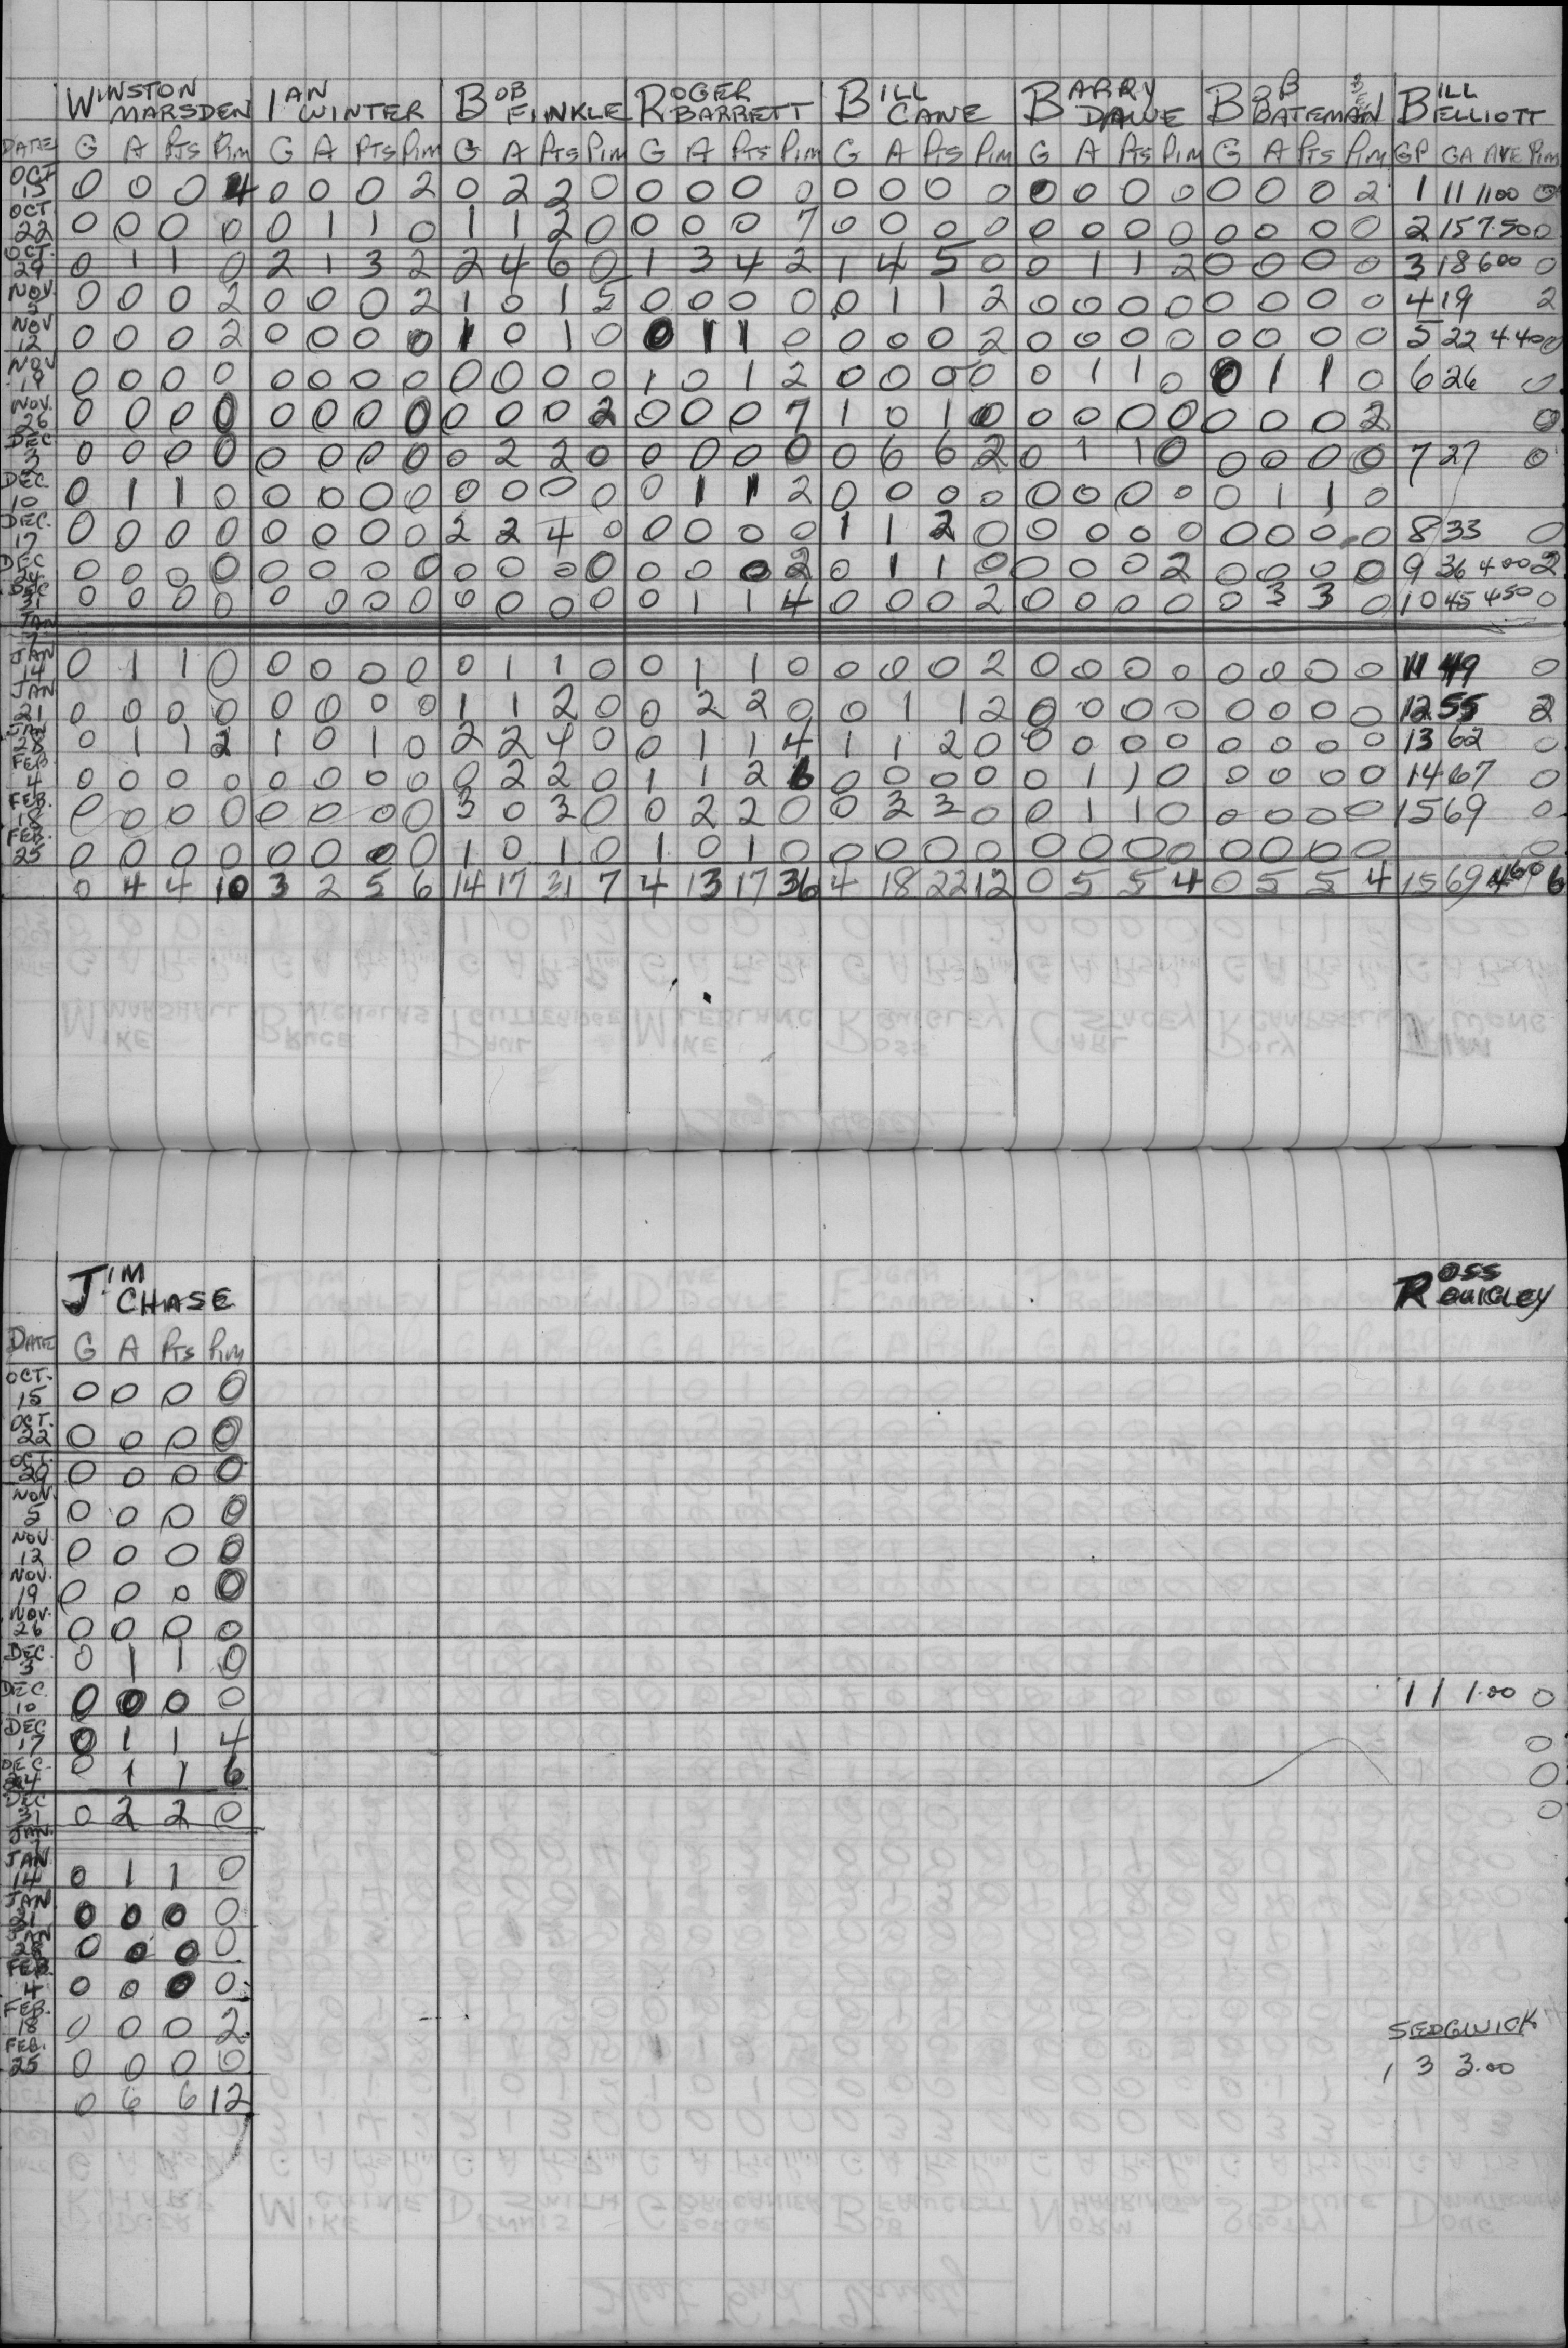 WINSTON MARSDEN IAN WINTER BOB FINKLE ROGER BARRETT BILL CANE BARRY DAWE BOB BATEMAN BILL ELLIOTT
DATE G A PTS PIM G A PTS PIM G A PTS PIM G A PTS PIM G A PTS PIM G A PTS PIM G A PTS PIM GP GA AVE PIM
OCT 15 0 0 0 4 0 0 0 2 0 2 2 0 0 0 0 0 0 0 0 0 0 0 0 0 0 0 0 2 1 11 11.00 0
OCT 22 0 0 0 0 0 1 1 0 1 1 2 0 0 0 0 7 0 0 0 0 0 0 0 0 0 0 0 0 2 15 7.50 0
OCT. 29 0 1 1 0 2 1 3 2 2 4 6 0 1 3 4 2 1 4 5 0 0 1 1 2 0 0 0 0 3 18 6.00 0
NOV. 5 0 0 0 2 0 0 0 2 1 0 1 5 0 0 0 0 0 1 1 2 0 0 0 0 0 0 0 0 4 19 2
NOV 12 0 0 0 2 0 0 0 0 1 0 1 0 0 1 1 0 0 0 0 2 0 0 0 0 0 0 0 0 5 22 4.40 0
NOV 19 0 0 0 0 0 0 0 0 0 0 0 0 1 0 1 2 0 0 0 0 0 1 1 0 0 1 1 0 6 26 0
NOV. 26 0 0 0 0 0 0 0 0 0 0 0 2 0 0 0 7 1 0 1 0 0 0 0 0 0 0 0 2 0
DEC 3 0 0 0 0 0 0 0 0 0 2 2 0 0 0 0 0 0 6 6 2 0 1 1 0 0 0 0 0 7 27 0
DEC. 10 0 1 1 0 0 0 0 0 0 0 0 0 0 1 1 2 0 0 0 0 0 0 0 0 0 1 1 0
DEC. 17 0 0 0 0 0 0 0 0 2 2 4 0 0 0 0 0 1 1 2 0 0 0 0 0 0 0 0 0 8 33 0
DEC 24 0 0 0 0 0 0 0 0 0 0 0 0 0 0 0 2 0 1 1 0 0 0 0 2 0 0 0 0 9 36 4.00 2
DEC 31 0 0 0 0 0 0 0 0 0 0 0 0 0 1 1 4 0 0 0 2 0 0 0 0 0 3 3 0 10 45 4.50 0
JAN 7
JAN 14 0 1 1 0 0 0 0 0 0 1 1 0 0 1 1 0 0 0 0 2 0 0 0 0 0 0 0 0 11 49 0
JAN 21 0 0 0 0 0 0 0 0 1 1 2 0 0 2 2 0 0 1 1 2 0 0 0 0 0 0 0 0 12 55 2
JAN 28 0 1 1 2 1 0 1 0 2 2 4 0 0 1 1 4 1 1 2 0 0 0 0 0 0 0 0 0 13 62 0
FEB 4 0 0 0 0 0 0 0 0 0 2 2 0 1 1 2 6 0 0 0 0 0 1 1 0 0 0 0 0 14 67 0
FEB. 18 0 0 0 0 0 0 0 0 3 0 3 0 0 2 2 0 0 3 3 0 0 1 1 0 0 0 0 0 15 69 0
FEB. 25 0 0 0 0 0 0 0 0 1 0 1 0 1 0 1 0 0 0 0 0 0 0 0 0 0 0 0 0 0
0 4 4 10 3 2 5 6 14 17 31 7 4 13 17 36 4 18 22 12 0 5 5 4 0 5 5 4 15 69 4.60 6
JIM CHASE ROSS QUIGLEY
DATE G A PTS PIM
OCT. 15 0 0 0 0
OCT. 22 0 0 0 0
OCT. 29 0 0 0 0
NOV. 5 0 0 0 0
NOV 12 0 0 0 0
NOV. 19 0 0 0 0
NOV. 26 0 0 0 0
DEC. 3 0 1 1 0
DEC. 10 0 0 0 0 1 1 1.00 0
DEC 17 0 1 1 4 0
DEC. 24 0 1 1 6 0
DEC 31 0 2 2 0 0
JAN.
JAN 14 0 1 1 0
JAN 21 0 0 0 0
JAN 28 0 0 0 0
FEB. 4 0 0 0 0
FEB. 18 0 0 0 2 SEDGWICK
FEB. 25 0 0 0 0 1 3 3.00
0 6 6 12